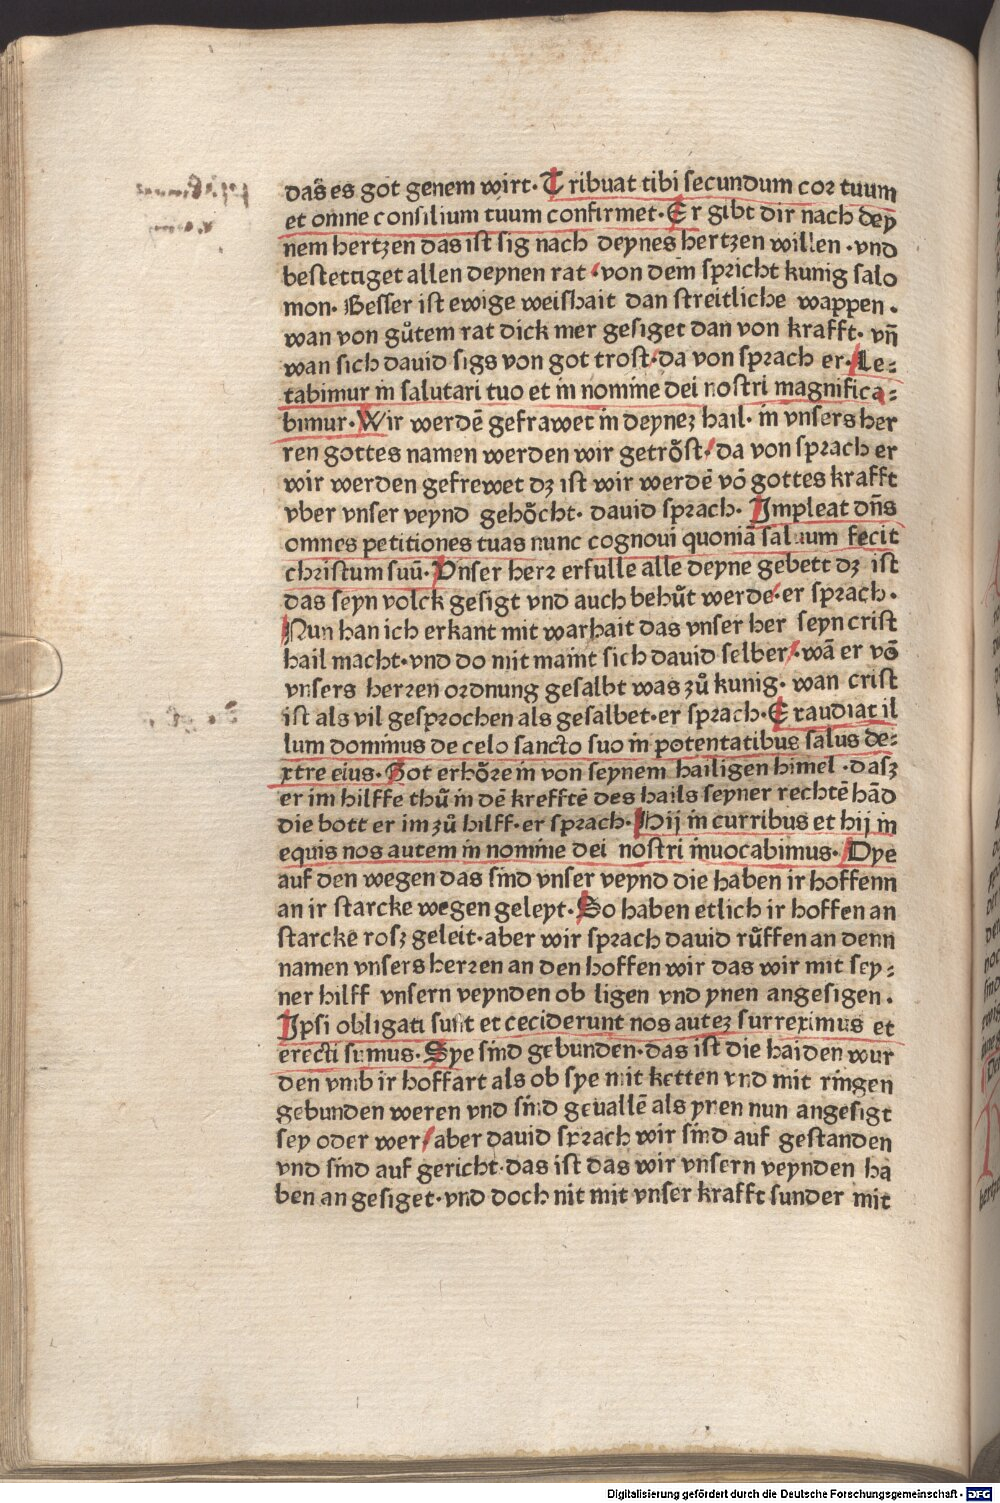 das es got genem wirt· Tribuat tibi secundum cor tuum
et omne consilium tuum confirmet· Er gibt dir nach dey
nem hertzen das ist sig nach deynes hertzen willen ·vnd
bestettiget allen deynen rat ·von dem spricht kunig salo
mon· Besser ist ewige weishait dan streitliche wappen ·
wan von gůtem rat dick mer gesiget dan von krafft· vn̄
wan sich dauid sigs von got trost· da von sprach er· Le⸗
tabimur in salutari tuo et in nomine dei nostri magnifica⸗
bimur· Wir werdē gefrawet in deynez hail· in vnsers her
ren gottes namen werden wir getrőst· da von sprach er
wir werden gefrewet dz ist wir werdē vō gottes krafft
vber vnser veynd gehőcht· dauid sprach· Impleat dn̄s
omnes petitiones tuas nunc cognoui quoniā saluum fecit
christum suū· Vnser herr erfulle alle deyne gebett dz ist
das seyn volck gesigt vnd auch behůt werde· er sprach ·
Nun han ich erkant mit warhait das vnser her seyn crist
hail macht· vnd do mit maint sich dauid selber ·wā er vō
vnsers herren ordnung gesalbt was zů kunig· wan crist
ist als vil gesprochen als gesalbet· er sprach· Exaudiat il
lum dominus de celo sancto suo in potentatibus salus de⸗
xtre eius· Got erhőre in von seynem hailigen himel ·dasz
er im hilffe thů in dē krefftē des hails seyner rechtē hād
die bott er im zů hilff· er sprach· Hij in curribus et hij in
equis nos autem in nomine dei nostri inuocabimus· Dye
auf den wegen das sind vnser veynd die haben ir hoffenn
an ir starcke wegen geleyt· So haben etlich ir hoffen an
starcke rosz geleit· aber wir sprach dauid růffen an denn
namen vnsers herren an den hoffen wir das wir mit sey⸗
ner hilff vnsern veynden ob ligen vnd ynen angesigen ·
Ipsi obligati sunt et ceciderunt nos autez surreximus et
erecti sumus· Sye sind gebunden· das ist die haiden wur
den vmb ir hoffart als ob sye mit ketten vnd mit ringen
gebunden weren vnd sind geuallē als ynen nun angesigt
sey oder wer/ aber dauid sprach wir sind auf gestanden
vnd sind auf gericht· das ist das wir vnsern veynden ha
ben an gesiget· vnd doch nit mit vnser krafft sunder mit
Digitalisierung gefördert durch die Deutsche Forschungsgemeinschaft - DFG